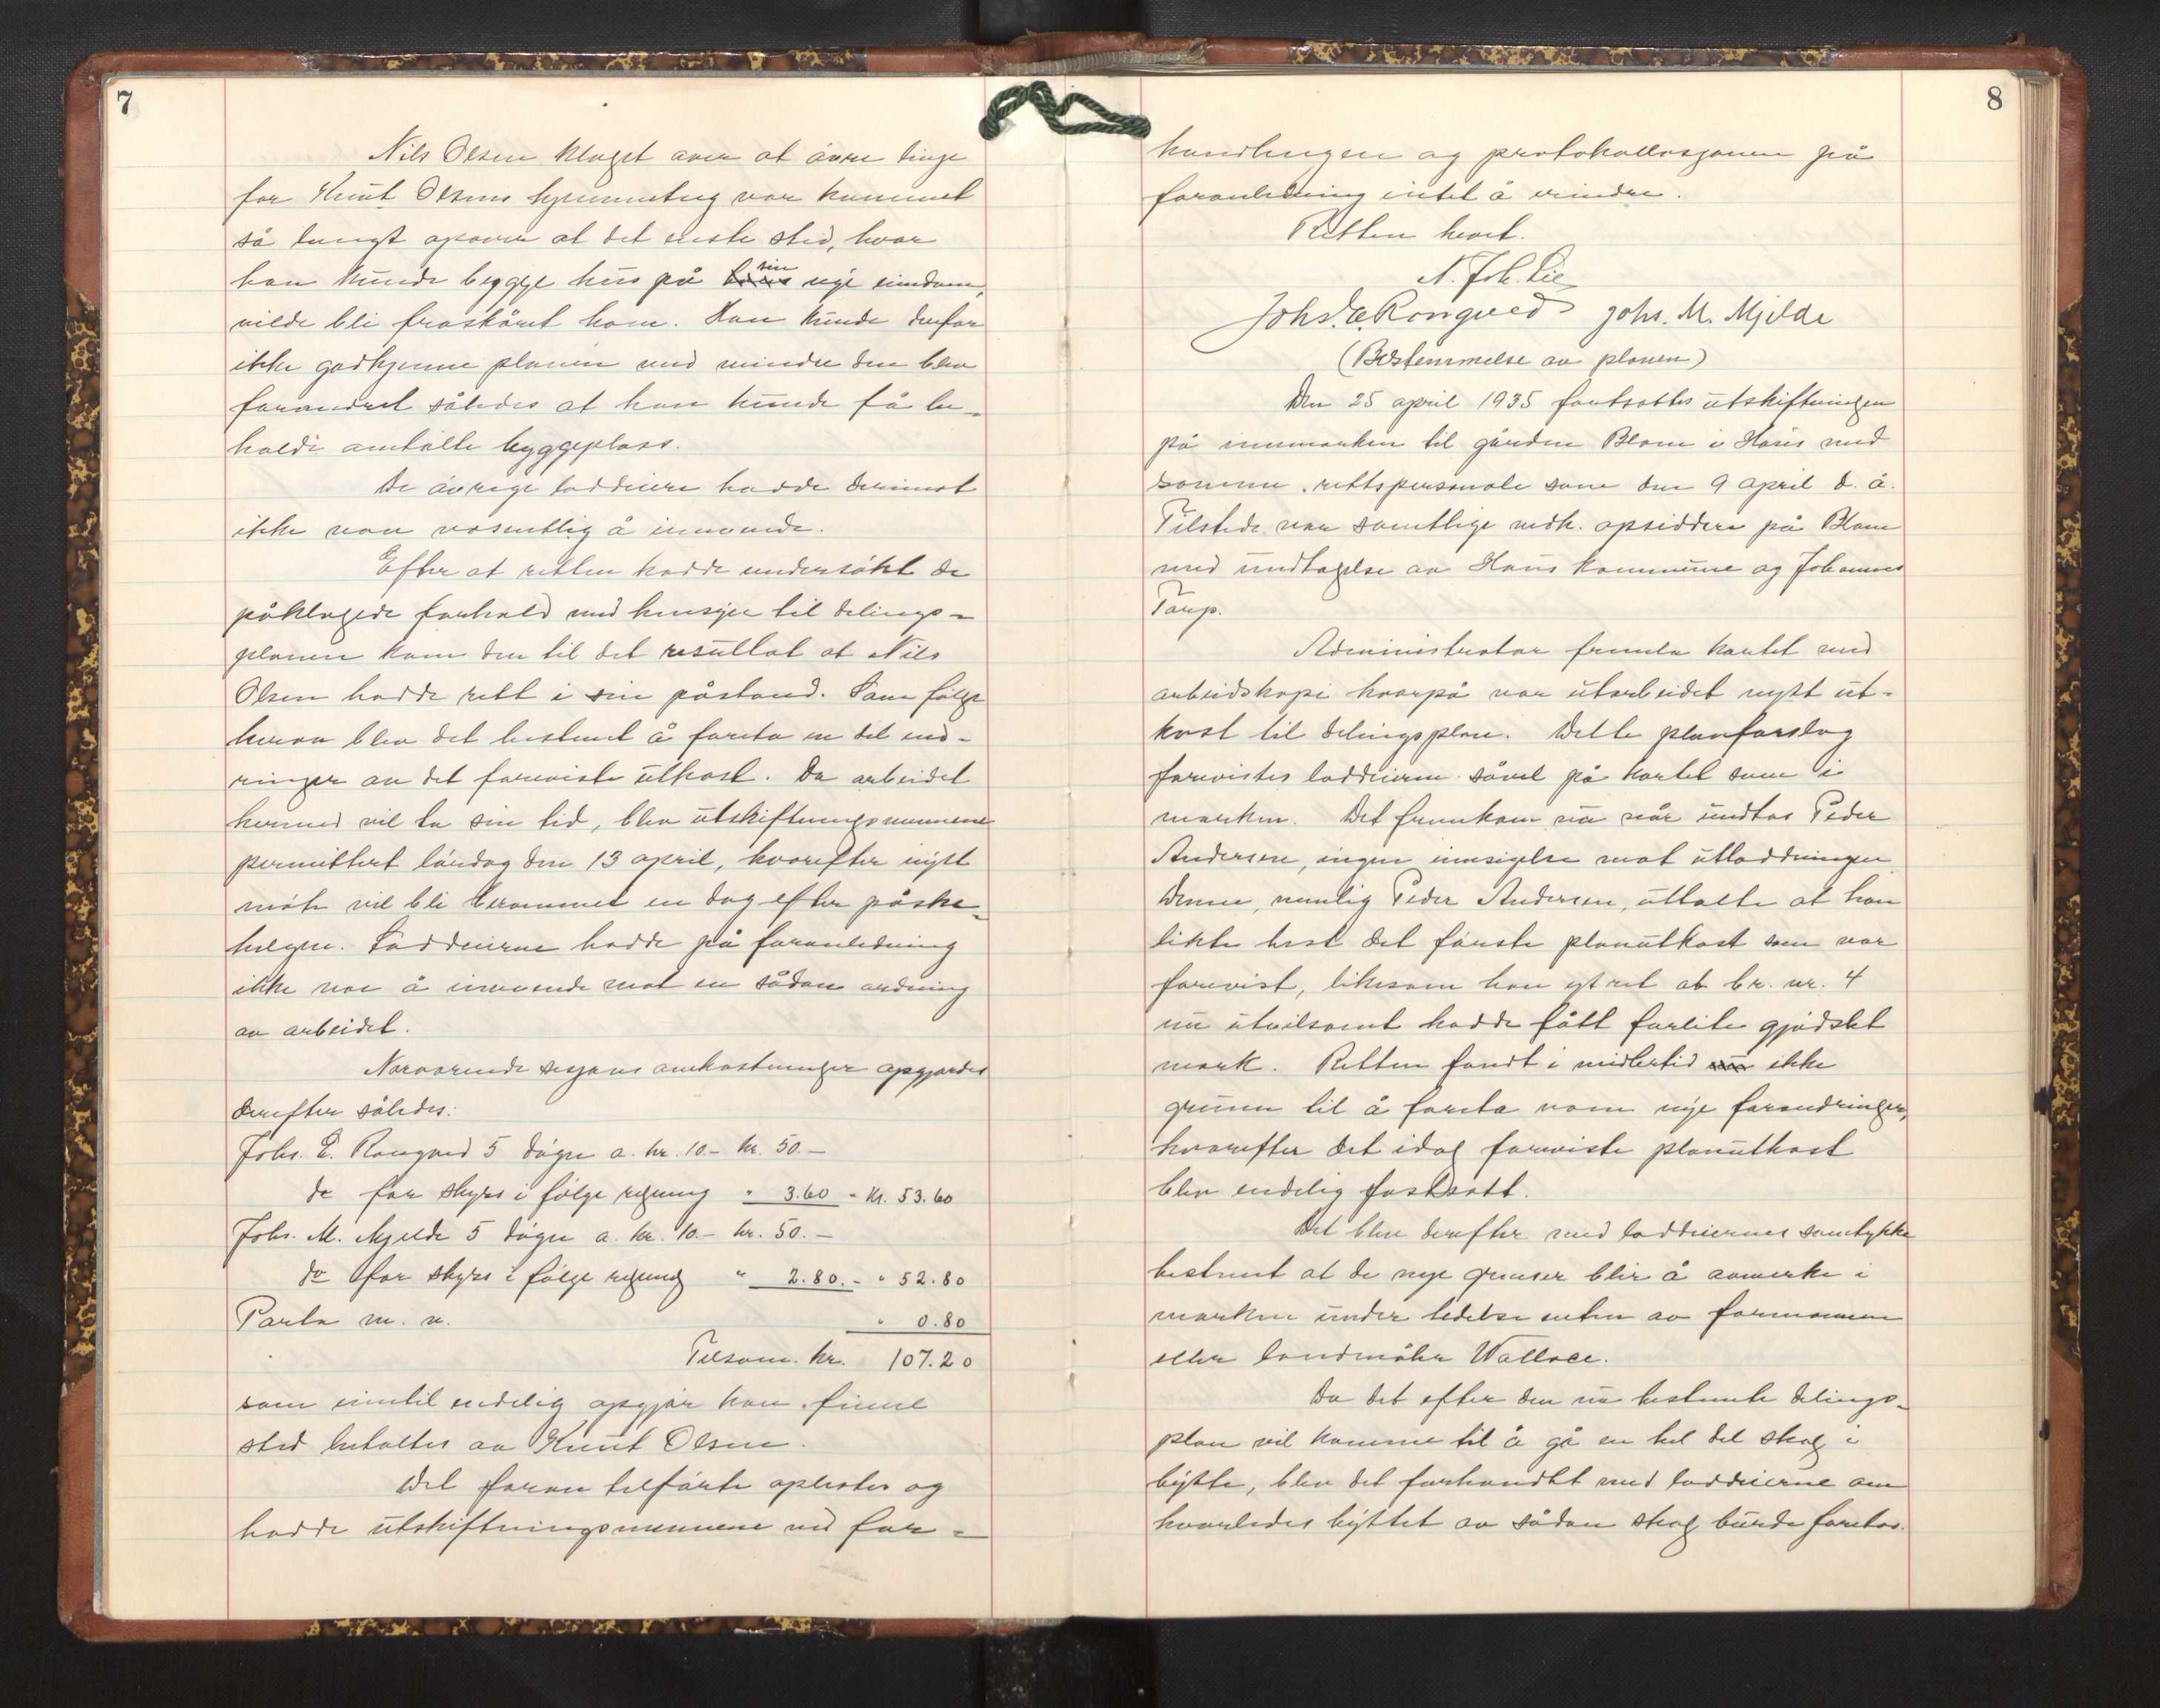 7
Nils Olsen klaget over at øvre linje
for Knut Olsens hjemmeteig var kommet
så langt opover at det eneste sted, hvor
han kunde bygge hus på sin nye eiendom,
vilde bli fraskåret ham. Han kunde derfor
ikke godkjenne planen med mindre den blev
forandret således at han kunde få be-
holde omtalte byggeplass.
De øvrige loddeiere hadde derimot
ikke noe vesentlig å innvende.
Efter at retten hadde undersøkt de
påklagede forhold med hensyn til delings-
planen kom den til det resultat at Nils
Olsen hadde rett i sin påstand. Som følge
herav blev det bestemt å foreta en del end-
ringer av det foreviste utkast. Da arbeidet
hermed vil ta sin tid, blev utskiftningsmennene
permittert lørdag den 13 april, hvorefter nytt
møte vil bli berammet en dag efter påske-
helgen. Loddeierne hadde på foranledning
ikke noe å innvende mot en sådan ordning
av arbeidet.
Nærværende sesjons omkostninger opgjordes
derefter således:
Johs. E. Rongved 5 døgn a. kr. 10.- kr. 50.-
do for skyss i følge regning " 3.60 - Kr. 53.60
Johs. M. Mjelde 5 døgn a. kr. 10.- kr. 50.-
do for skyss i følge regning " 2.80.- " 52.80
Porto m. v. " 0.80
Tilsam. kr. 107.20
som inntil endelig opgjør kan finne
sted betaltes av Knut Olsen.
Det foran tilførte oplestes og
hadde utskiftningsmennene ved for-
8
handlingen og protokollasjonen på
foranledning intet å erindre.
Retten hevet.
N. Joh. Lie
Johs. E. Rongved Johs. M. Mjelde
(Bestemmelse av planen)
Den 25 april 1935 fortsattes utskiftningen
på innmarken til gården Blom i Haus med
samme rettspersonale som den 9 april d. å.
Tilstede var samtlige vedk. opsiddere på Blom
med undtagelse av Haus kommune og Johannes
Taup.
Administrator fremla kartet med
arbeidskopi hvorpå var utarbeidet nytt ut-
kast til delingsplan. Dette planforslag
forevistes loddeierne såvel på kartet som i
marken. Det fremkom nu når undtas Peder
Andersen, ingen innsigelse mot utloddningen
Denne, nemlig Peder Andersen, uttalte at han
likte best det første planutkast som var
forevist, likesom han ytret at br. nr. 4
nu utvilsomt hadde fått forlite gjødslet
mark. Retten fandt i midlertid ikke
grunn til å foreta noen nye forandringer,
hvorefter det idag foreviste planutkast
blev endelig fastsatt.
Det blev derefter med loddeiernes samtykke
bestemt at de nye grenser blir å avmerke i
marken under ledelse enten av formannen
eller landmåler Wallace.
Da det efter den nu bestemte delings-
plan vil komme til å gå en hel del skog i
bytte, blev det forhandlet med loddeierne om
hvorledes byttet av sådan skog burde foretas.